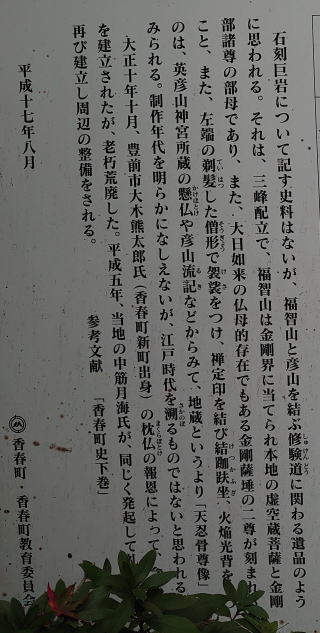 石刻巨岩について記す史料はないが、福智山と彦山を結ぶ修験道に関わる遺品のよう
に思われる。それは、三峰配立で、福智山は金剛界に当てられ本地の虚空蔵菩薩と金剛
部諸尊の部母であり、また、大日如来の仏母的存在でもある金剛薩埵の二尊が刻まれ
こと、また、左端の剃髪した僧形で袈裟をつけ、禅定印を結び結跏趺坐、火焔光背を
のは、英彦山神宮所蔵の懸仏や彦山流記などからみて、地蔵というより「天忍骨尊像」
みられる。制作年代を明らかになしえないが、江戸時代を溯るものではないと思われる
大正十年十月、豊前市大木熊太郎氏(香春町新町出身)の枕仏の報恩によって、
を建立されたが、老朽荒廃した。平成五年、当地の中筋月海氏が、同じく発起して
再び建立し周辺の整備をされる。
参考文献 「香春町史下巻」
平成十七年八月
香春町 香春町教育委員会